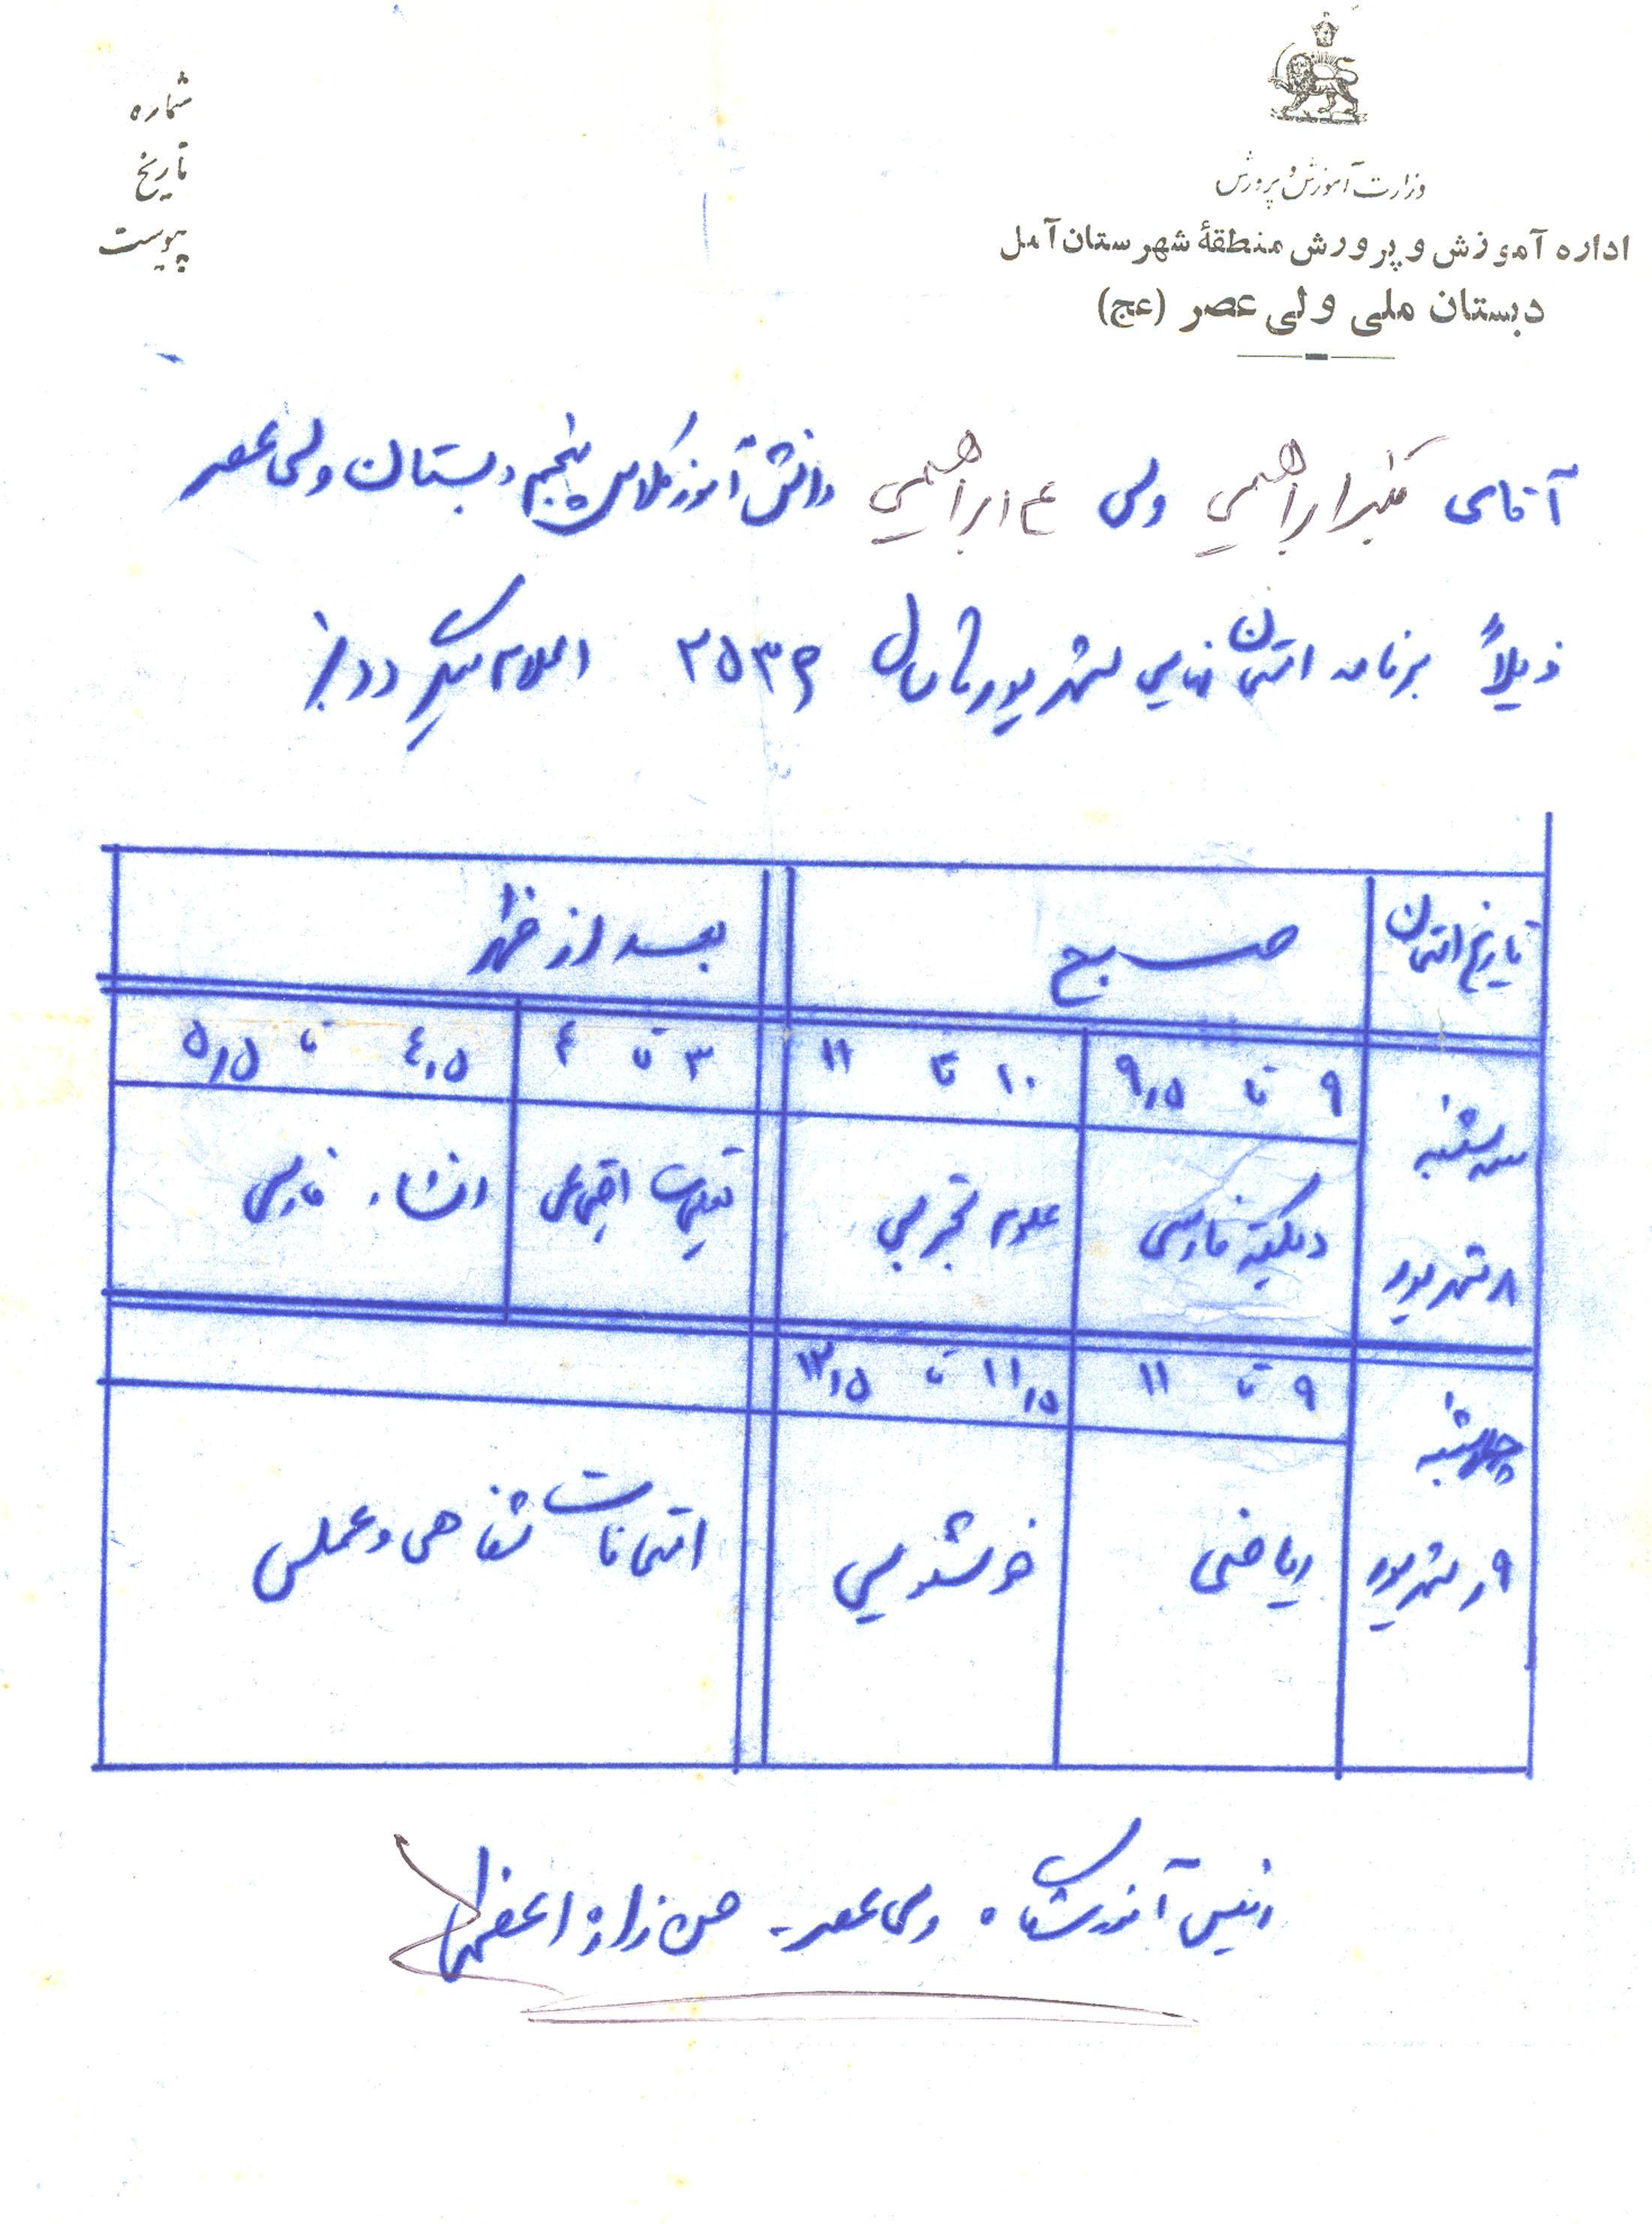 وزارت آموزش و پرورش
اداره آموزش و پرورش منطقهٔ شهرستان آمل
دبستان ملی ولی عصر (عج)
شماره
تاریخ
پیوست
آقای ابراهیمی ولی ع ابراهیمی دانش آموز کلاس پنجم دبستان ولی عصر
ذیلاً برنامه امتحان نهایی شهریور ماه سال ۲۵۳۶ اعلام میگردد
تاریخ امتحان صبح بعد از ظهر
سه شنبه ۹ تا ۹٫۵ ۱۰ تا ۱۱ ۳ تا ۴ ۴٫۵ تا ۵٫۵
۸ شهریور دیکته فارسی علوم تجربی تعلیمات اجتماعی انشاء فارسی
چهارشنبه ۹ تا ۱۱ ۱۱٫۵ تا ۱۲٫۵
۹ شهریور ریاضی خوشنویسی امتحانات شفاهی و عملی
رئیس آموزشگاه ولی عصر - حسن